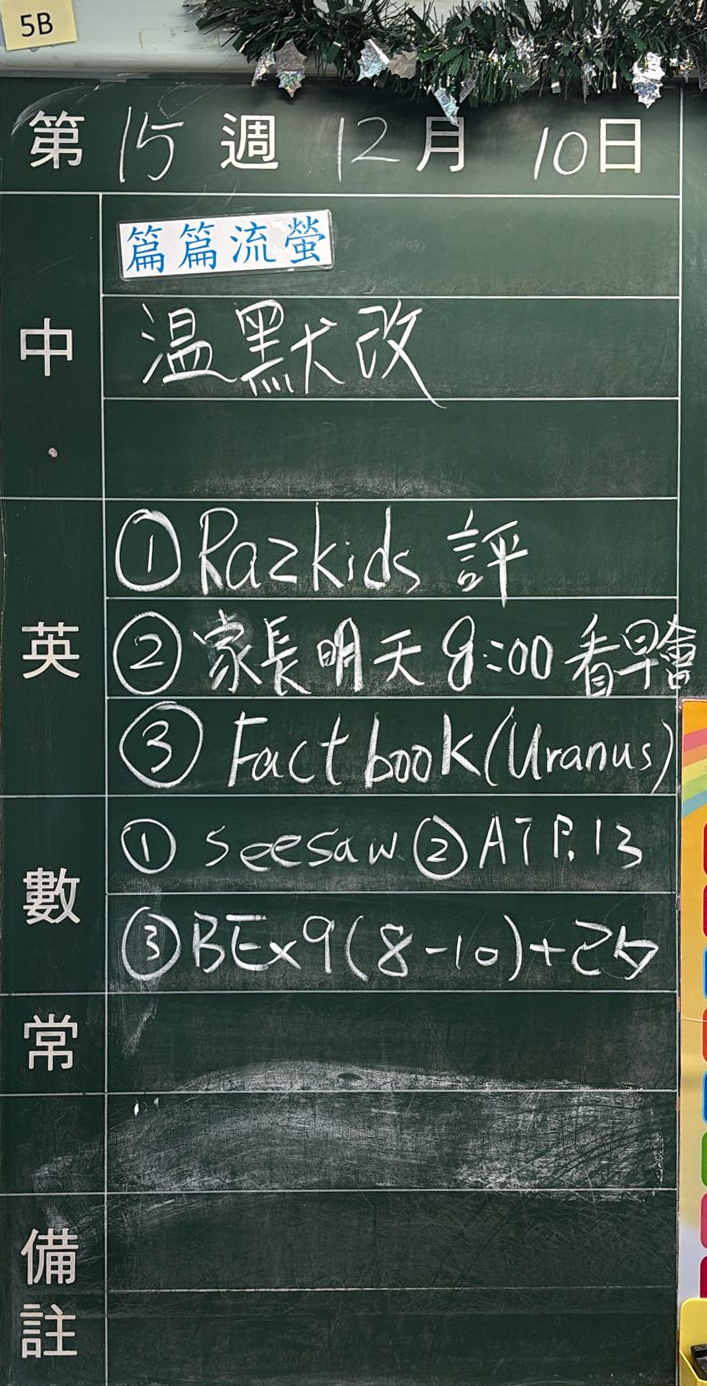 5B
第 15 週 12 月 10 日
中
篇篇流螢
温默改
英
① Razkids 評
② 家長明天 8:00 看早會
③ Fact book (Uranus)
數
① seesaw ② AT P.13
③ BEx9(8-10)+
常
備註